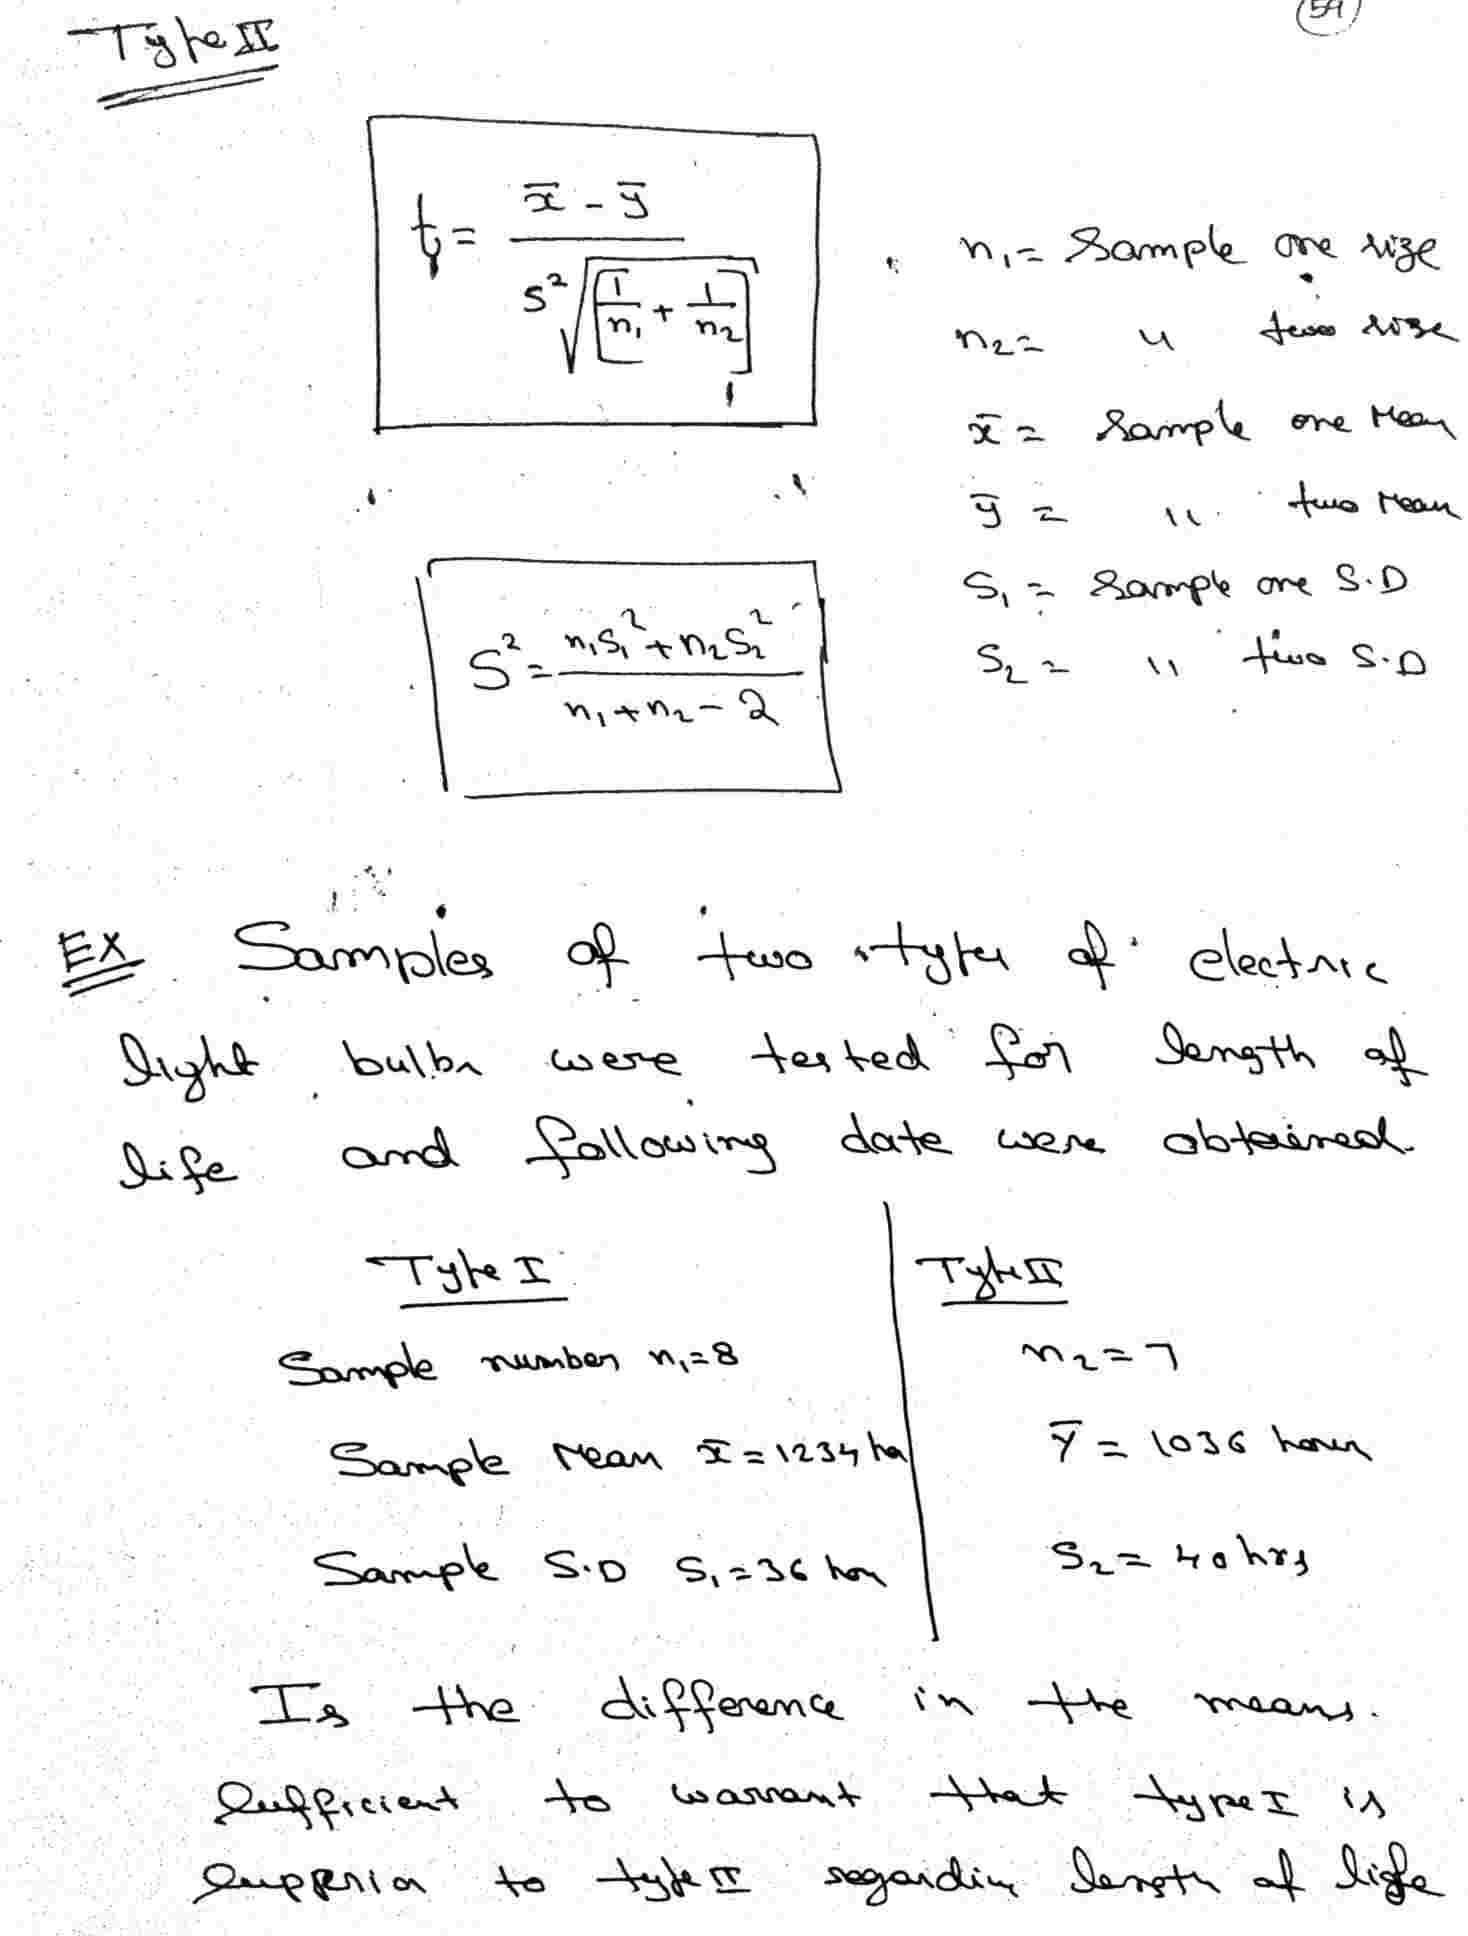 59
Type II
t = x̄ - ȳ / S² √[1/n₁ + 1/n₂]
n₁ = Sample one size
n₂ = " two size
x̄ = Sample one Mean
ȳ = " two Mean
S₁ = Sample one S.D
S₂ = " two S.D
S² = n₁S₁² + n₂S₂² / n₁ + n₂ - 2
Ex Samples of two types of electric
light bulbs were tested for length of
life and following date were obtained.
Type I Type II
Sample number n₁=8 n₂=7
Sample Mean x̄=1234 hrs ȳ = 1036 hours
Sample S.D S₁=36 hrs S₂=40hrs
Is the difference in the means.
Sufficient to warrant that type I is
to type II regarding length of life